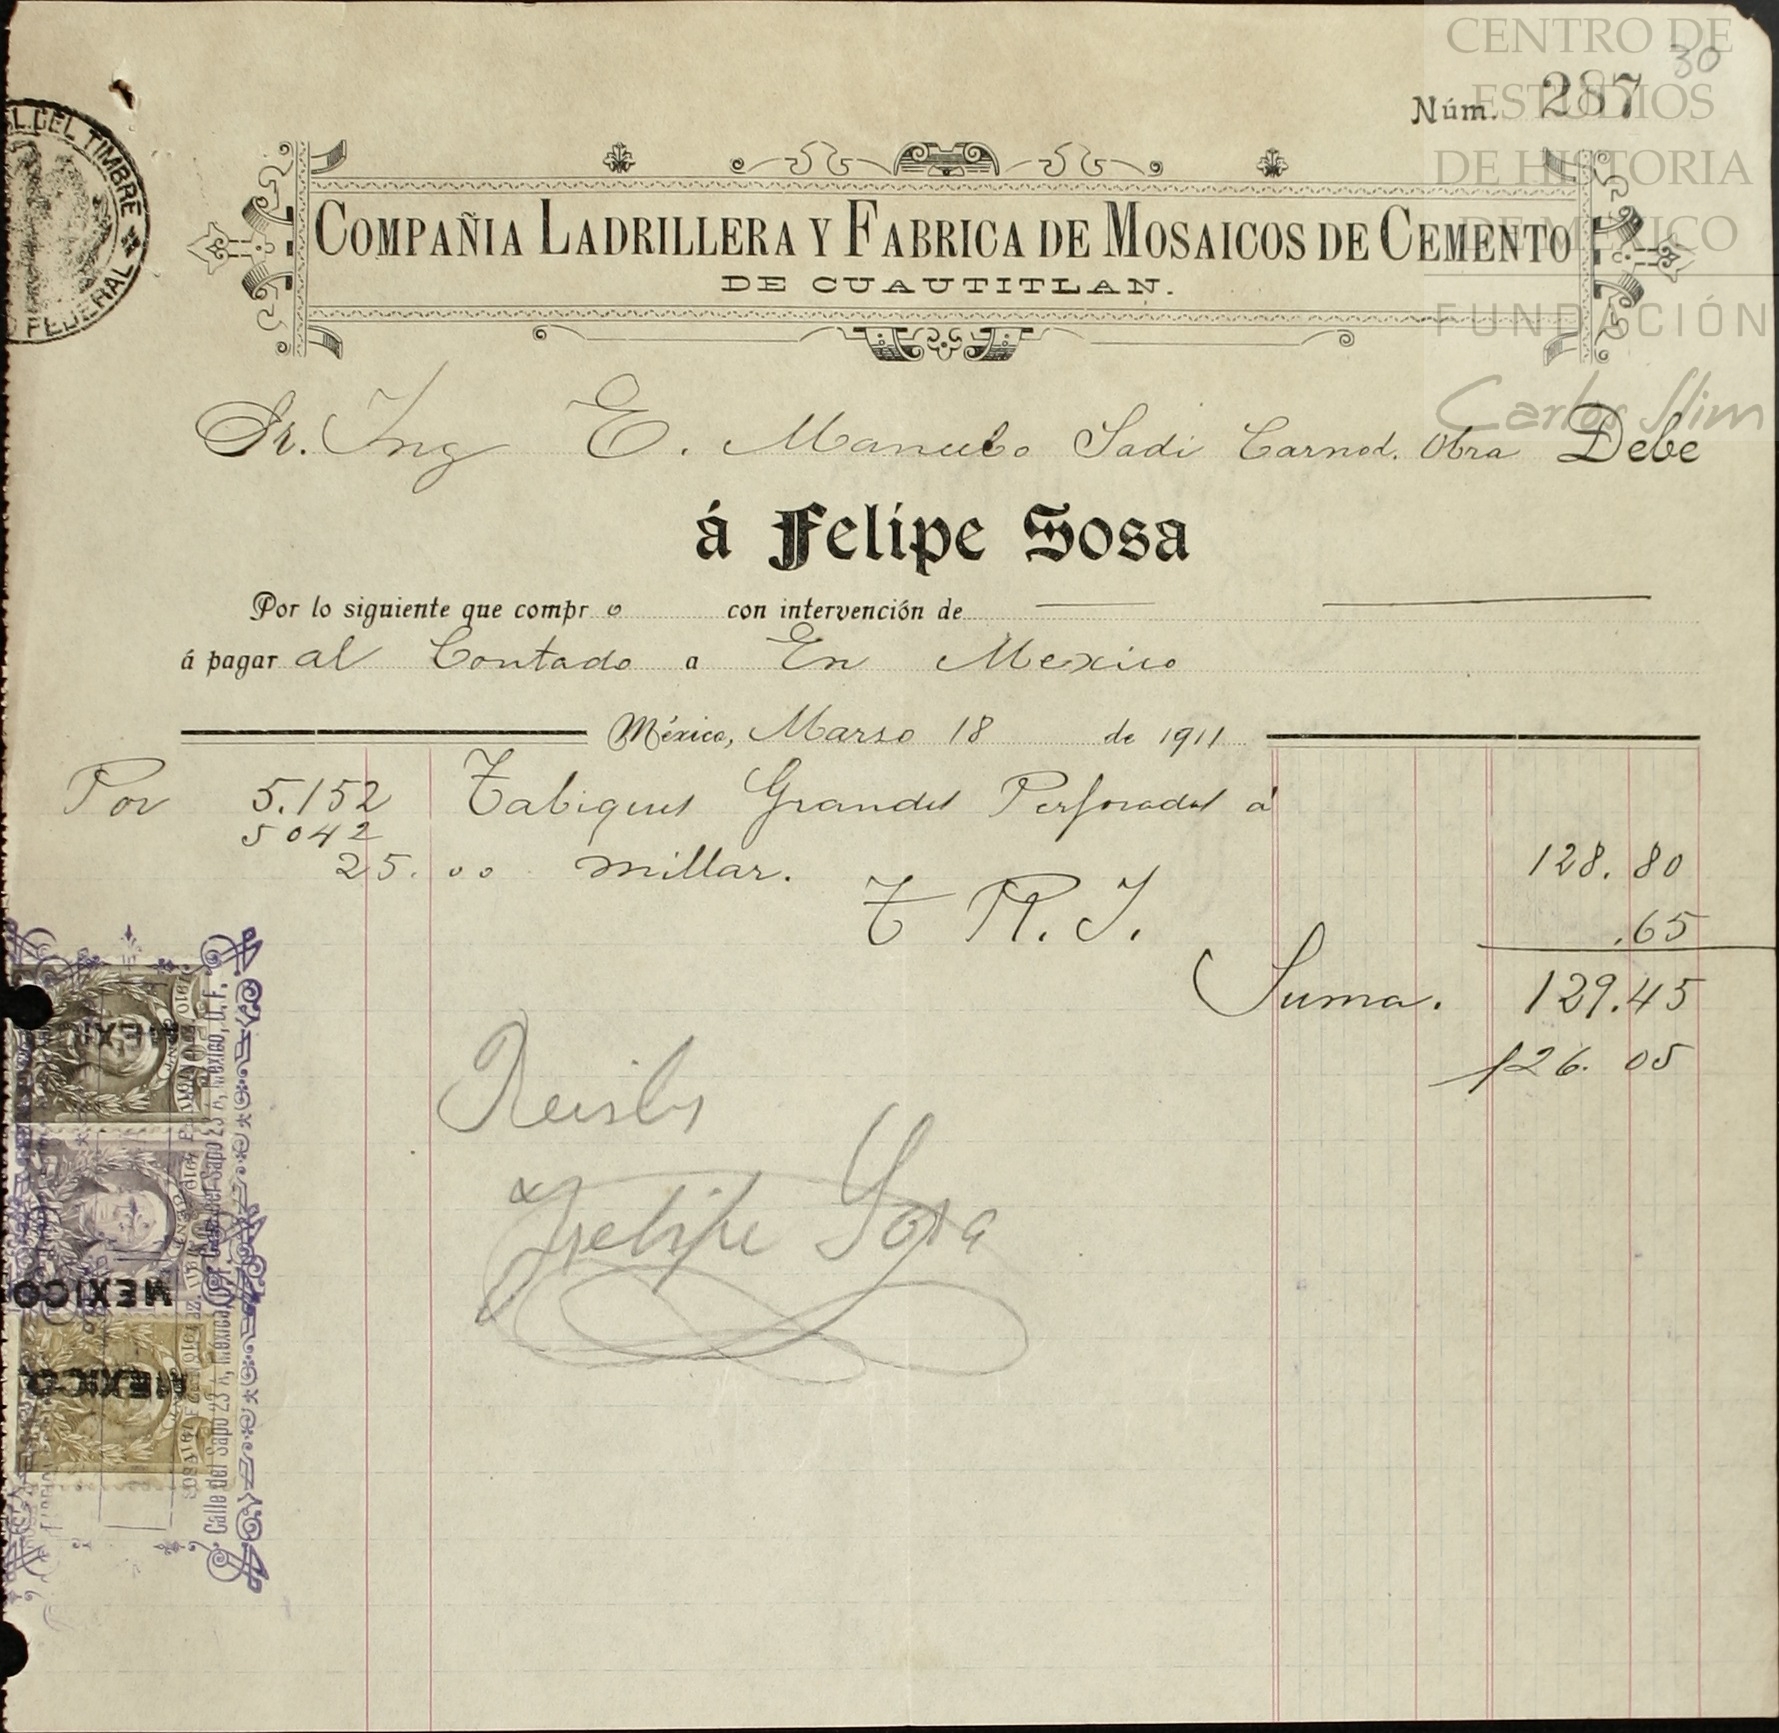 CENTRO DE
ESTUDIOS
DE HISTORIA
DE MEXICO
FUNDACIÓN
Carlos Slim
30
Núm. 287
L DEL TIMBRE
FEDERAL
COMPAÑIA LADRILLERA Y FABRICA DE MOSAICOS DE CEMENTO
DE CUAUTITLAN.
Sr. Ing E. Manuelo Sadi Carnot. Obra Debe
á Felipe Sosa
Por lo siguiente que compr o con intervención de
á pagar al Contado a En Mexico
México, Marso 18 de 1911
Por 5.152 Tabiques Grandes Perforados á
5042
25.00 millar. 128.80
T R. I. .65
Suma. 129.45
126.05
Recibi
Felipe Sosa
MEXICO
MEXICO
Calle del Sapo 23 A, Mexico, D. F.